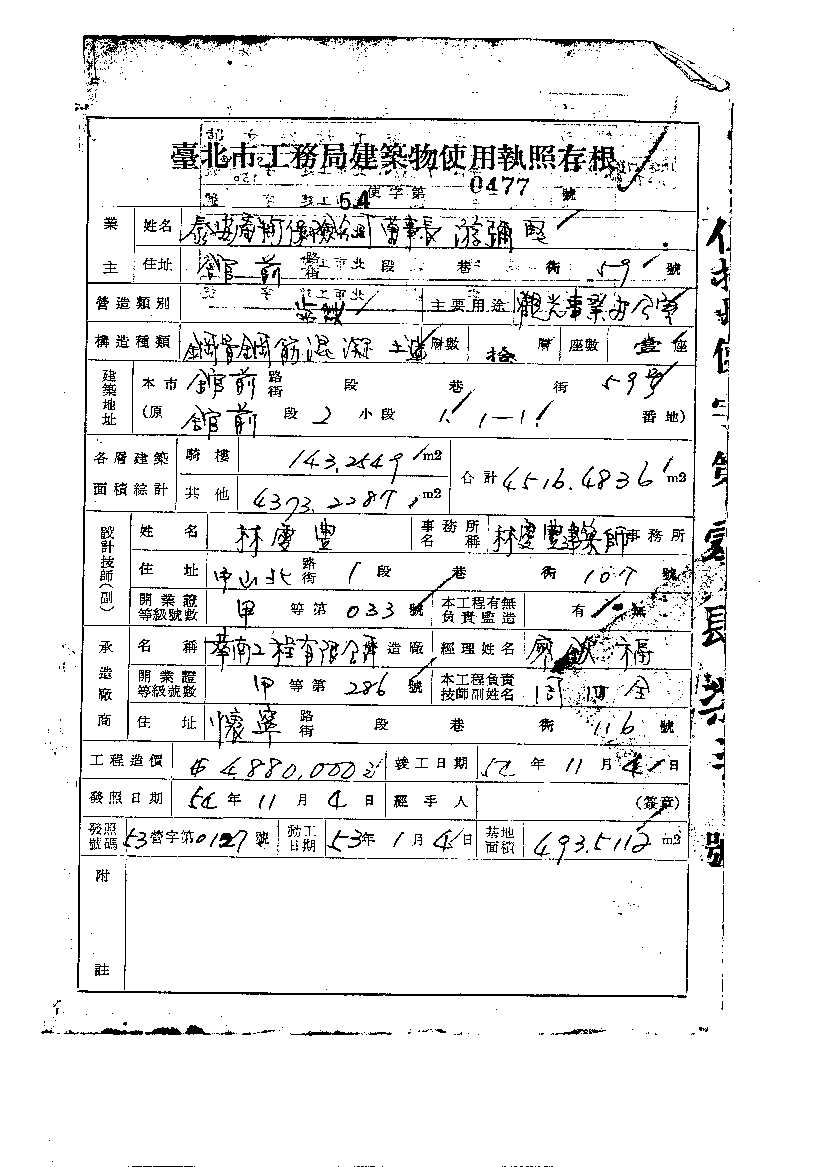 臺北市工務局建築物使用執照存根
54 使字第 0477 號
業主 姓名 泰安產物保險公司董事長 游彌堅
住址 館前 路街 段 巷 衖 59 號
營造類別 主要用途 觀光事業辦公室
構造種類 鋼骨鋼筋混凝土造 層數 拾 層 座數 壹 座
建築地址 本市 館前 路街 段 巷 衖 59號
(原 館前 段 2 小段 1.1-1. 番地)
各層建築面積綜計 騎樓 143.2549 m2 合計 4516.4836 m2
其他 4373.2287 m2
設計技師(副) 姓名 林慶豐 事務所名稱 林慶豐建築師事務所
住址 中山北 路街 1 段 巷 衖 107 號
開業證等級號數 甲 等第 033 號 本工程有無負責監造 有 無
承造廠商 名稱 華南工程有限公司 造廠 經理姓名 廖欽福
開業證等級號數 甲 等第 286 號 本工程負責技師副姓名 周四全
住址 懷寧 路街 段 巷 衖 116 號
工程造價 $4,880,000 竣工日期 54 年 11 月 4 日
發照日期 54 年 11 月 4 日 經手人 (簽章)
發照號碼 53營字第0127號 動工日期 53年 1 月 4 日 基地面積 493.5112 m2
附註